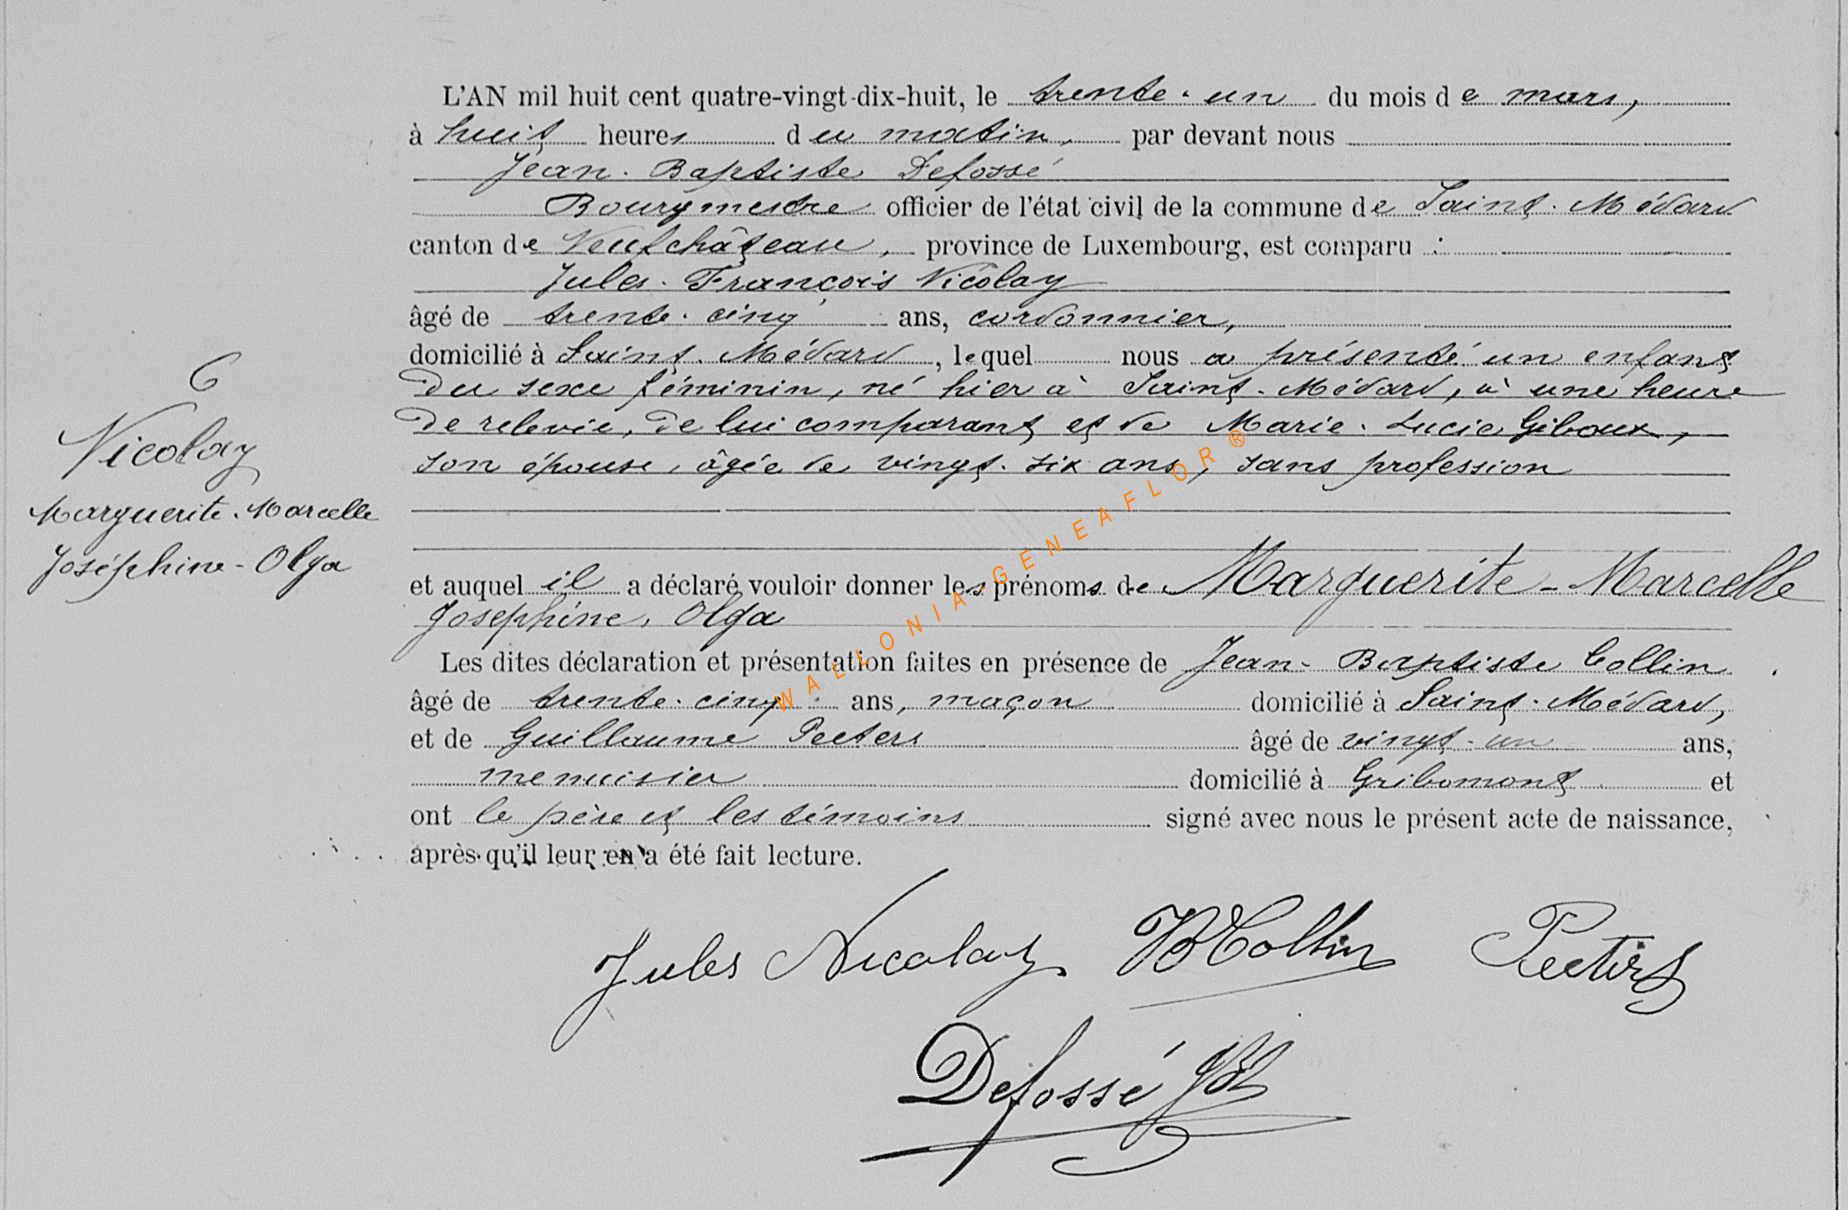 L'AN mil huit cent quatre-vingt-dix-huit, le trente-un du mois de mars,
à huit heures du matin, par devant nous
Jean-Baptiste Defossé
Bourgmestre officier de l'état civil de la commune de Saint-Médard
canton de Neufchâteau, province de Luxembourg, est comparu :
Jules-François Nicolay
âgé de trente-cinq ans, cordonnier,
domicilié à Saint-Médard, lequel nous a présenté un enfant
du sexe féminin, né hier à Saint-Médard, à une heure
de relevée, de lui comparant et de Marie-Lucie Giboux,
son épouse, âgée de vingt-six ans, sans profession
6
Nicolay
Marguerite-Marcelle
Joséphine-Olga
et auquel il a déclaré vouloir donner les prénoms de Marguerite-Marcelle
Josephine, Olga
Les dites déclaration et présentation faites en présence de Jean-Baptiste Collin
âgé de trente-cinq ans, maçon domicilié à Saint-Médard,
et de Guillaume Peeters âgé de vingt-un ans,
menuisier domicilié à Gribomont et
ont le père et les témoins signé avec nous le présent acte de naissance,
après qu'il leur en a été fait lecture.
Jules Nicolay JBCollin Peeters
Defossé JB
WALLONIA-GENEAFLOR®